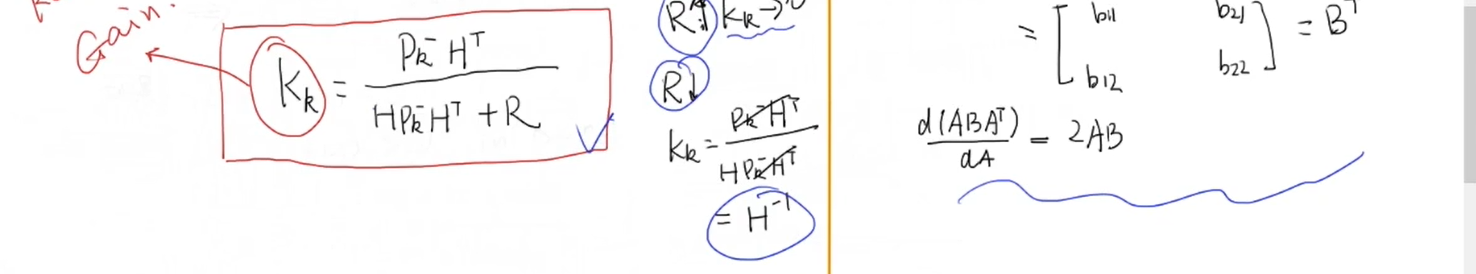 Gain.
K_k = \frac{P_k^- H^T}{H P_k^- H^T + R}
R↑ K_k → 0
R↓
K_k = \frac{P_k^- H^T}{H P_k^- H^T}
= H^{-1}
= \begin{bmatrix} b_{11} & b_{21} \\ b_{12} & b_{22} \end{bmatrix} = B^T
\frac{d(ABA^T)}{dA} = 2AB